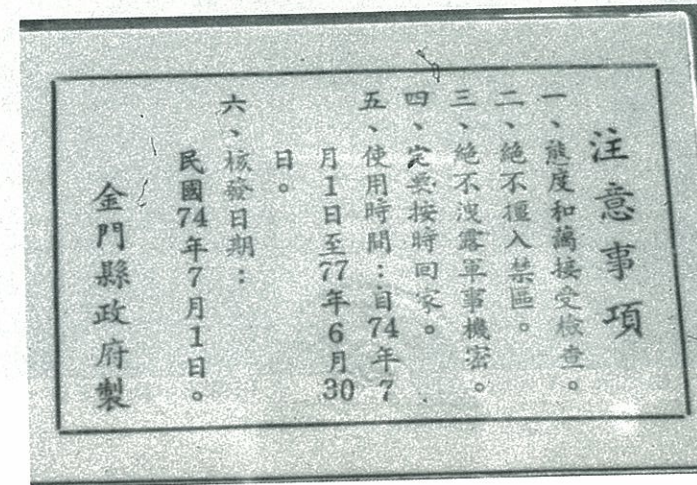 注意事項
一、態度和藹接受檢查。
二、絕不擅入禁區。
三、絕不洩露軍事機密。
四、定要按時回家。
五、使用時間：自74年7
月1日至77年6月30
日。
六、核發日期：
民國74年7月1日。
金門縣政府製